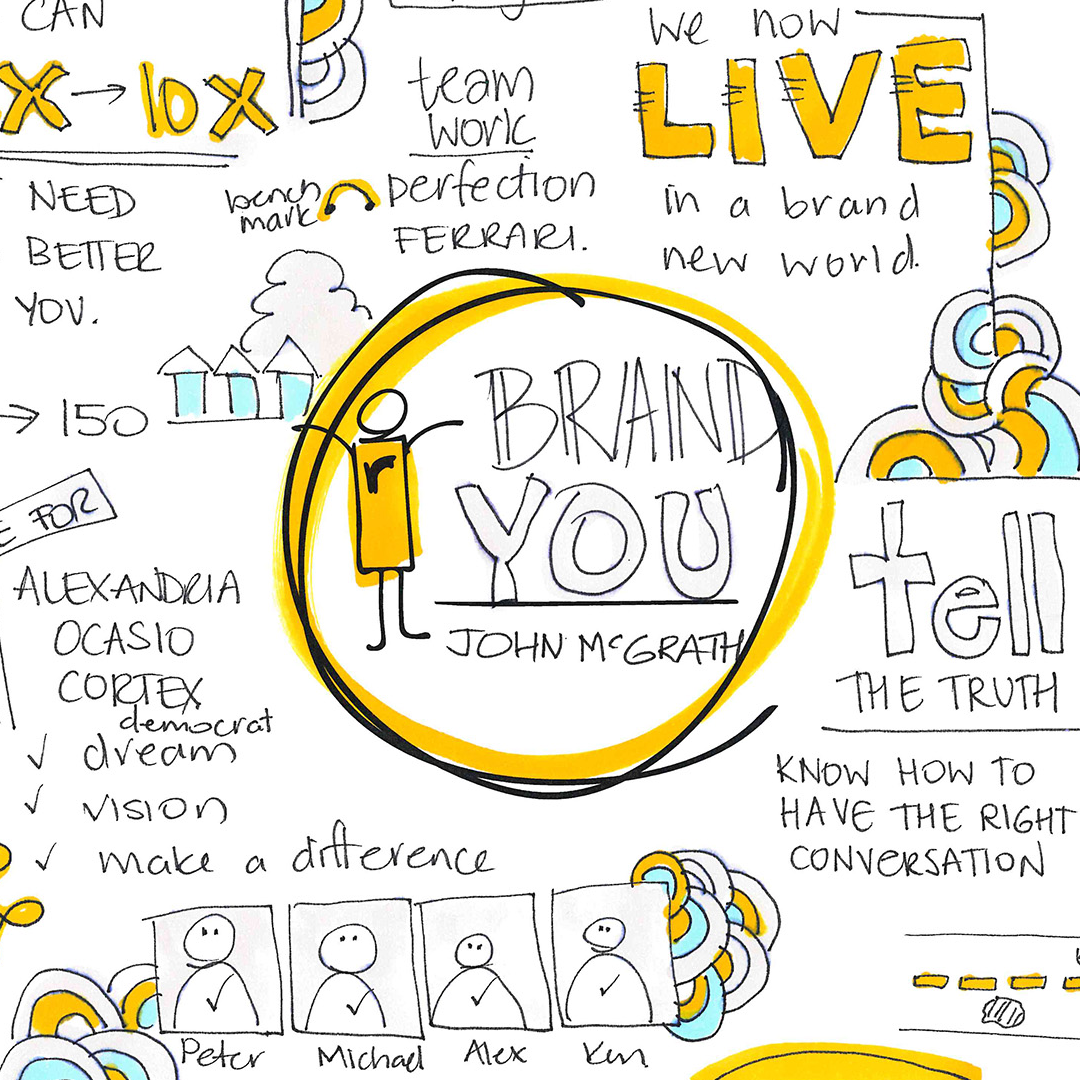 CAN
X → 10X
NEED
BETTER
YOU.
→ 150
team
work
bench
mark
perfection
FERRARI.
we now
LIVE
in a brand
new world.
r
BRAND
YOU
JOHN McGRATH
FOR
ALEXANDRIA
OCASIO
CORTEX
democrat
✓ dream
✓ vision
✓ make a difference
tell
THE TRUTH
KNOW HOW TO
HAVE THE RIGHT
CONVERSATION
Peter
Michael
Alex
Ken